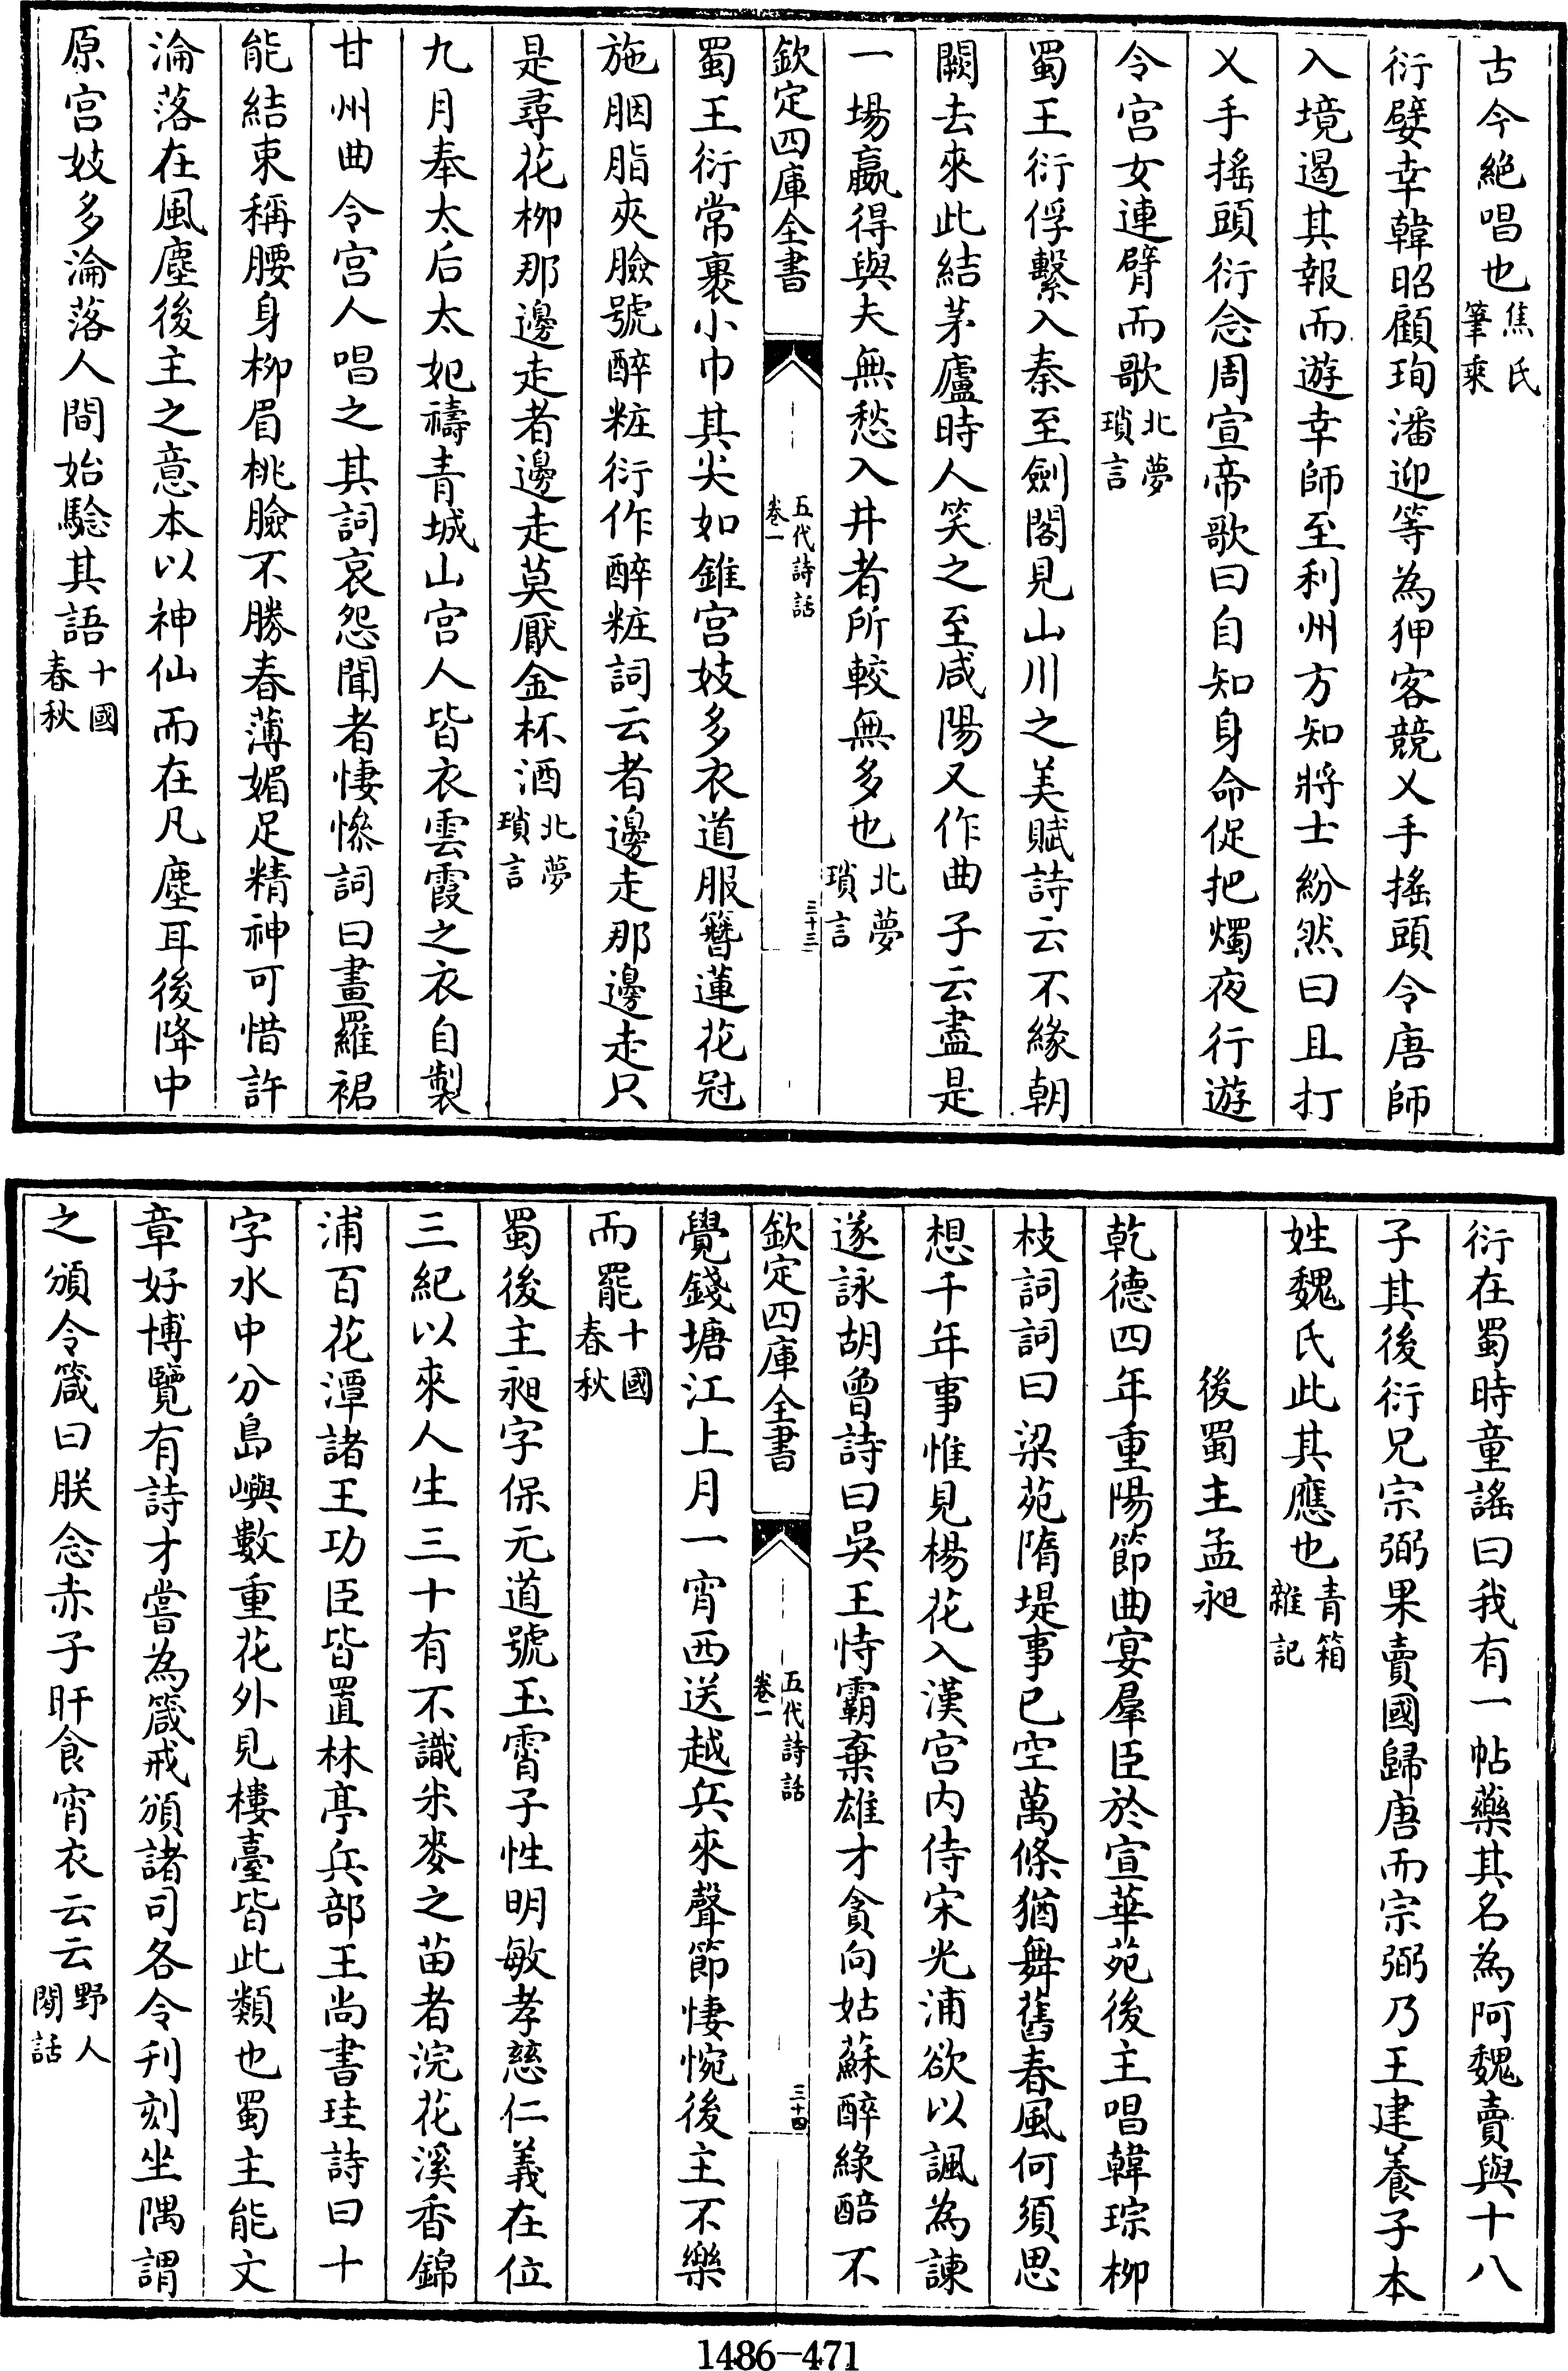 古今絶唱也焦氏筆乘
衍嬖幸韓昭顧珣潘迎等為狎客競乂手搖頭令唐師
入境遏其報而遊幸師至利州方知將士紛然曰且打
乂手搖頭衍念周宣帝歌曰自知身命促把燭夜行遊
令宮女連臂而歌北夢瑣言
蜀王衍俘繫入秦至劍閣見山川之美賦詩云不緣朝
闕去來此結茅廬時人笑之至咸陽又作曲子云盡是
一場贏得與夫無愁入井者所較無多也北夢瑣言
欽定四庫全書
五代詩話
卷一
三十三
蜀王衍常裹小巾其尖如錐宮妓多衣道服簪蓮花冠
施胭脂夾臉號醉粧衍作醉粧詞云者邊走那邊走只
是尋花柳那邊走者邊走莫厭金杯酒北夢瑣言
九月奉太后太妃禱青城山宮人皆衣雲霞之衣自製
甘州曲令宮人唱之其詞哀怨聞者悽慘詞曰畫羅裙
能結束稱腰身柳眉桃臉不勝春薄媚足精神可惜許
淪落在風塵後主之意本以神仙而在凡塵耳後降中
原宮妓多淪落人間始驗其語十國春秋
衍在蜀時童謠曰我有一帖藥其名為阿魏賣與十八
子其後衍兄宗弼果賣國歸唐而宗弼乃王建養子本
姓魏氏此其應也青箱雜記
後蜀主孟昶
乾德四年重陽節曲宴羣臣於宣華苑後主唱韓琮柳
枝詞詞曰梁苑隋堤事已空萬條猶舞舊春風何須思
想千年事惟見楊花入漢宮内侍宋光浦欲以諷為諫
遂詠胡曾詩曰吳王恃霸棄雄才貪向姑蘇醉綠醅不
欽定四庫全書
五代詩話
卷一
三十四
覺錢塘江上月一宵西送越兵來聲節悽惋後主不樂
而罷十國春秋
蜀後主昶字保元道號玉霄子性明敏孝慈仁義在位
三紀以來人生三十有不識米麥之苗者浣花溪香錦
浦百花潭諸王功臣皆置林亭兵部王尚書珪詩曰十
字水中分島嶼數重花外見樓臺皆此類也蜀主能文
章好博覽有詩才嘗為箴戒頒諸司各令刋刻坐隅謂
之頒令箴曰朕念赤子旰食宵衣云云野人閒話
1486-471